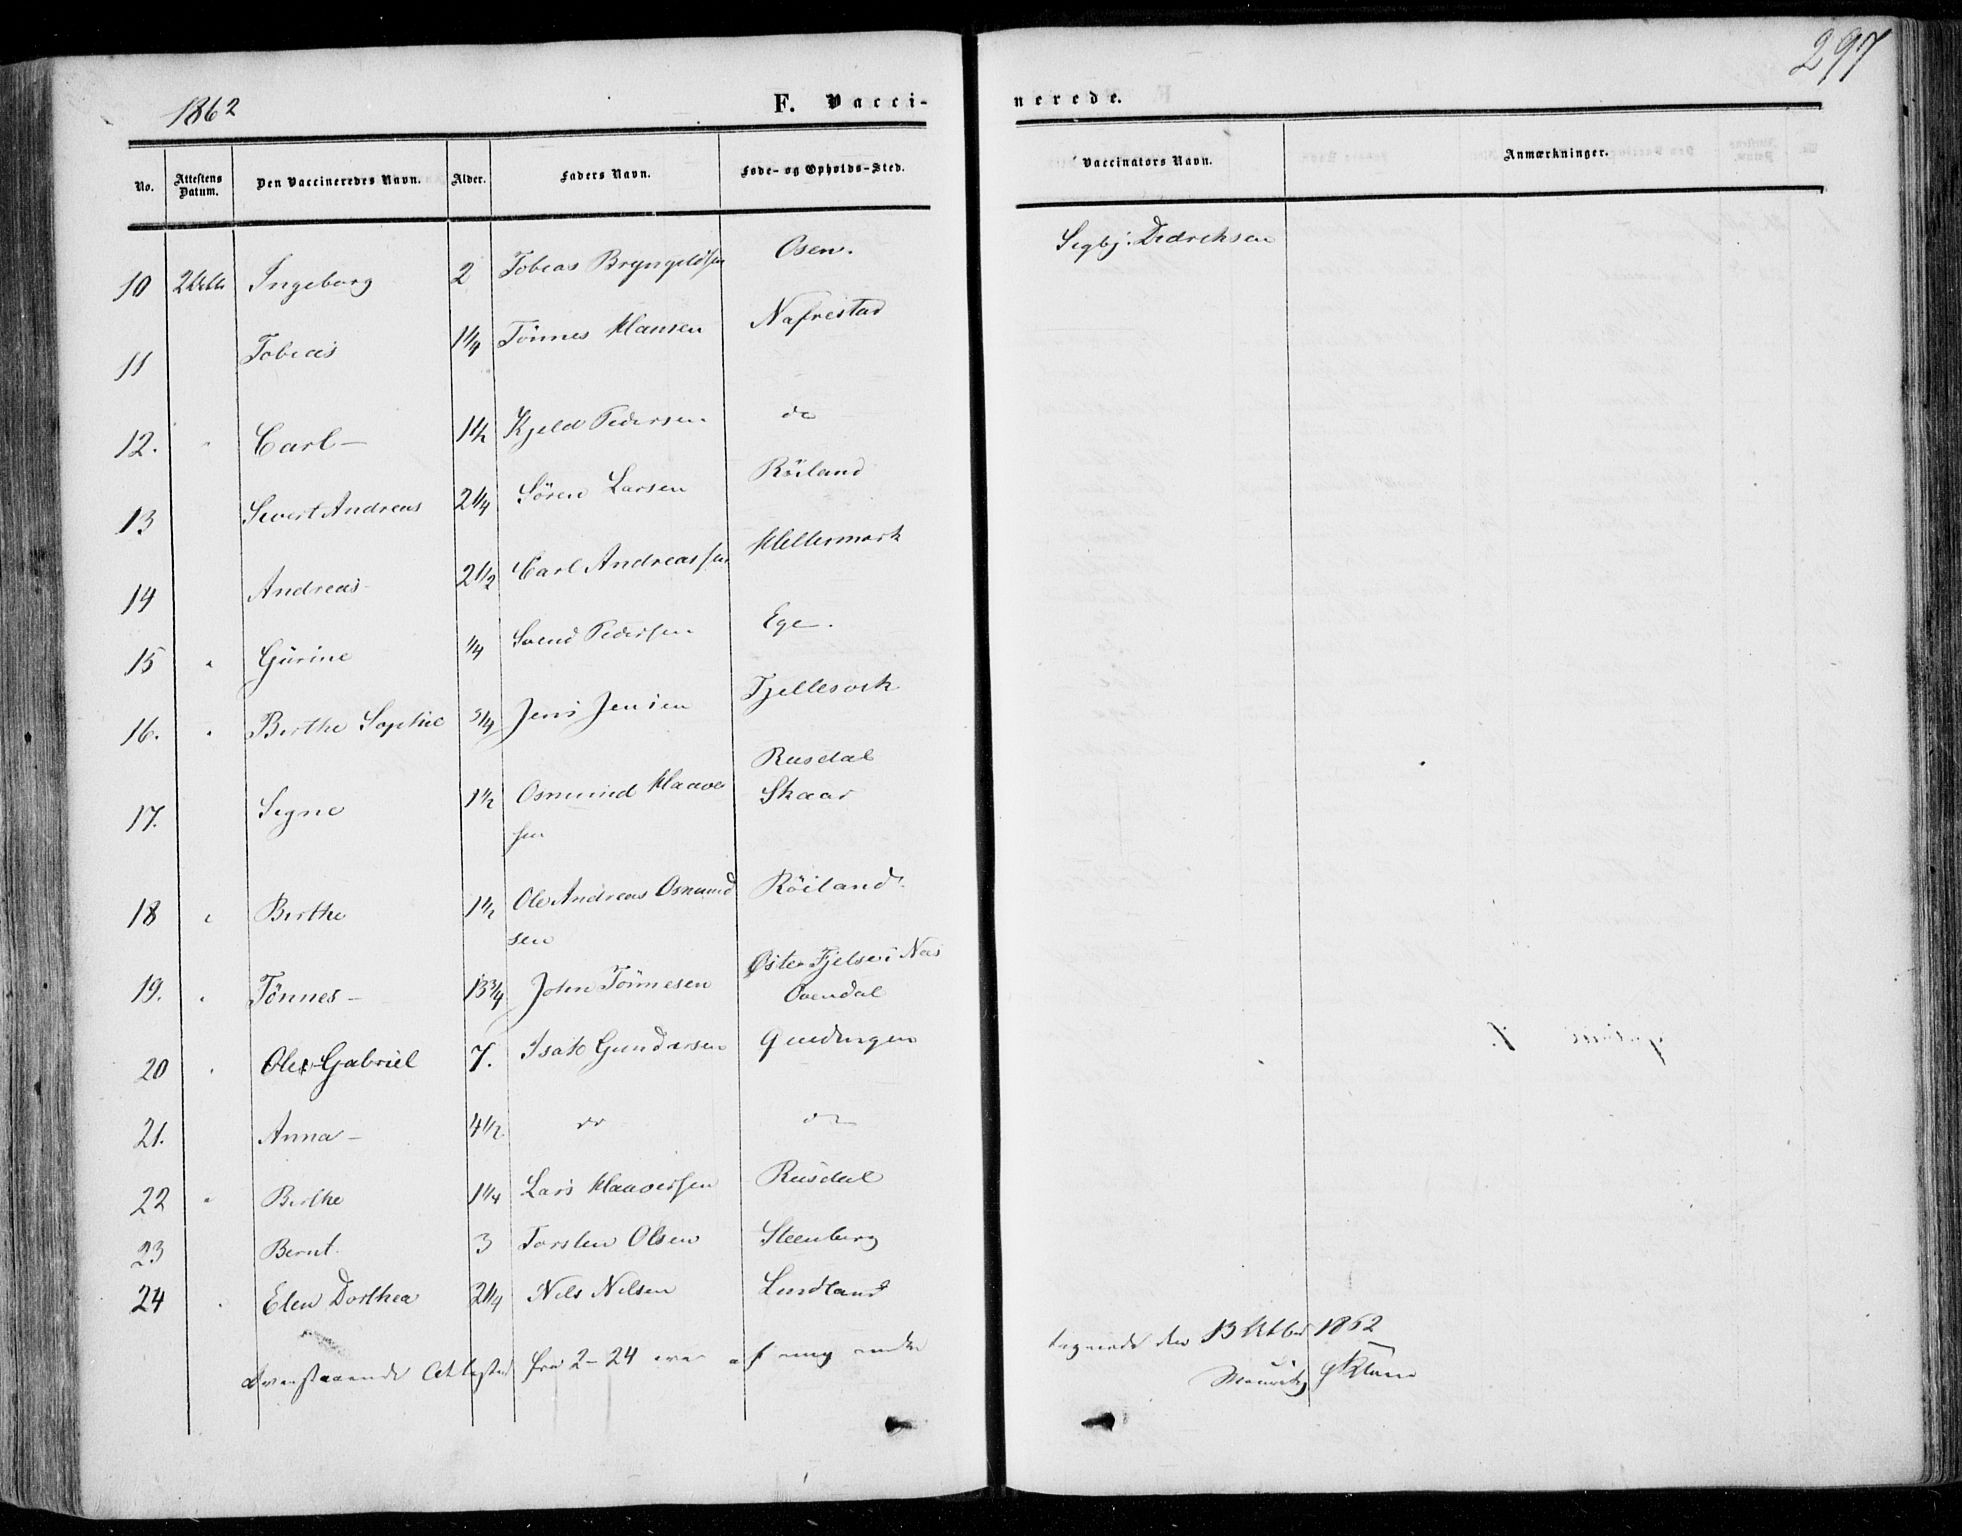 297
1862 F. Vacci- nerede.
No. Attestens Datum. Den Vaccineredes Navn. Alder. Faders Navn. Føde- og Opholds-Sted. Vaccinators Navn. Anmærkninger.
10 Ingeborg 2 Tobias Bryngelsen Osen. Sigbj. Didrichsen
11 Tobias 1 1/4 Tönnes Hansen Nafrestad
12. " Carl - 1 1/2 Kjeld Pedersen do
13 Sivert Andreas 2 1/4 Sören Larsen Röiland
14 Andreas - 2 1/2 Carl Andreassen Hellermark
15 " Gurine 1/4 Svend Pedersen Ege.
16. " Berthe Sophie 3/4 Jens Jensen Fjellesvik
Rusdal
17. Signe 1 1/2 Osmund Haaver Skaar
sen
18 " Berthe 1 1/2 Ole Andreas Osmund Röiland.
sen
19. " Tönnes - 13 3/4 John Tönnesen Øster Fjelse i Næs
Ovendal
20 " Ole Gabriel 7. Isak Gundersen Quedingen
21. Anna - 4 1/2 do do
22 " Berthe 1 1/4 Lars Haaversen Rusdal
23 Bernt. 3 Torsten Olsen Steenberg
24 " Elen Dorthea 2 1/4 Nils Nilsen Lindland
Ovenstaaende Attester fra 2-24 ere af mig tegnede den 13 Octbr 1862